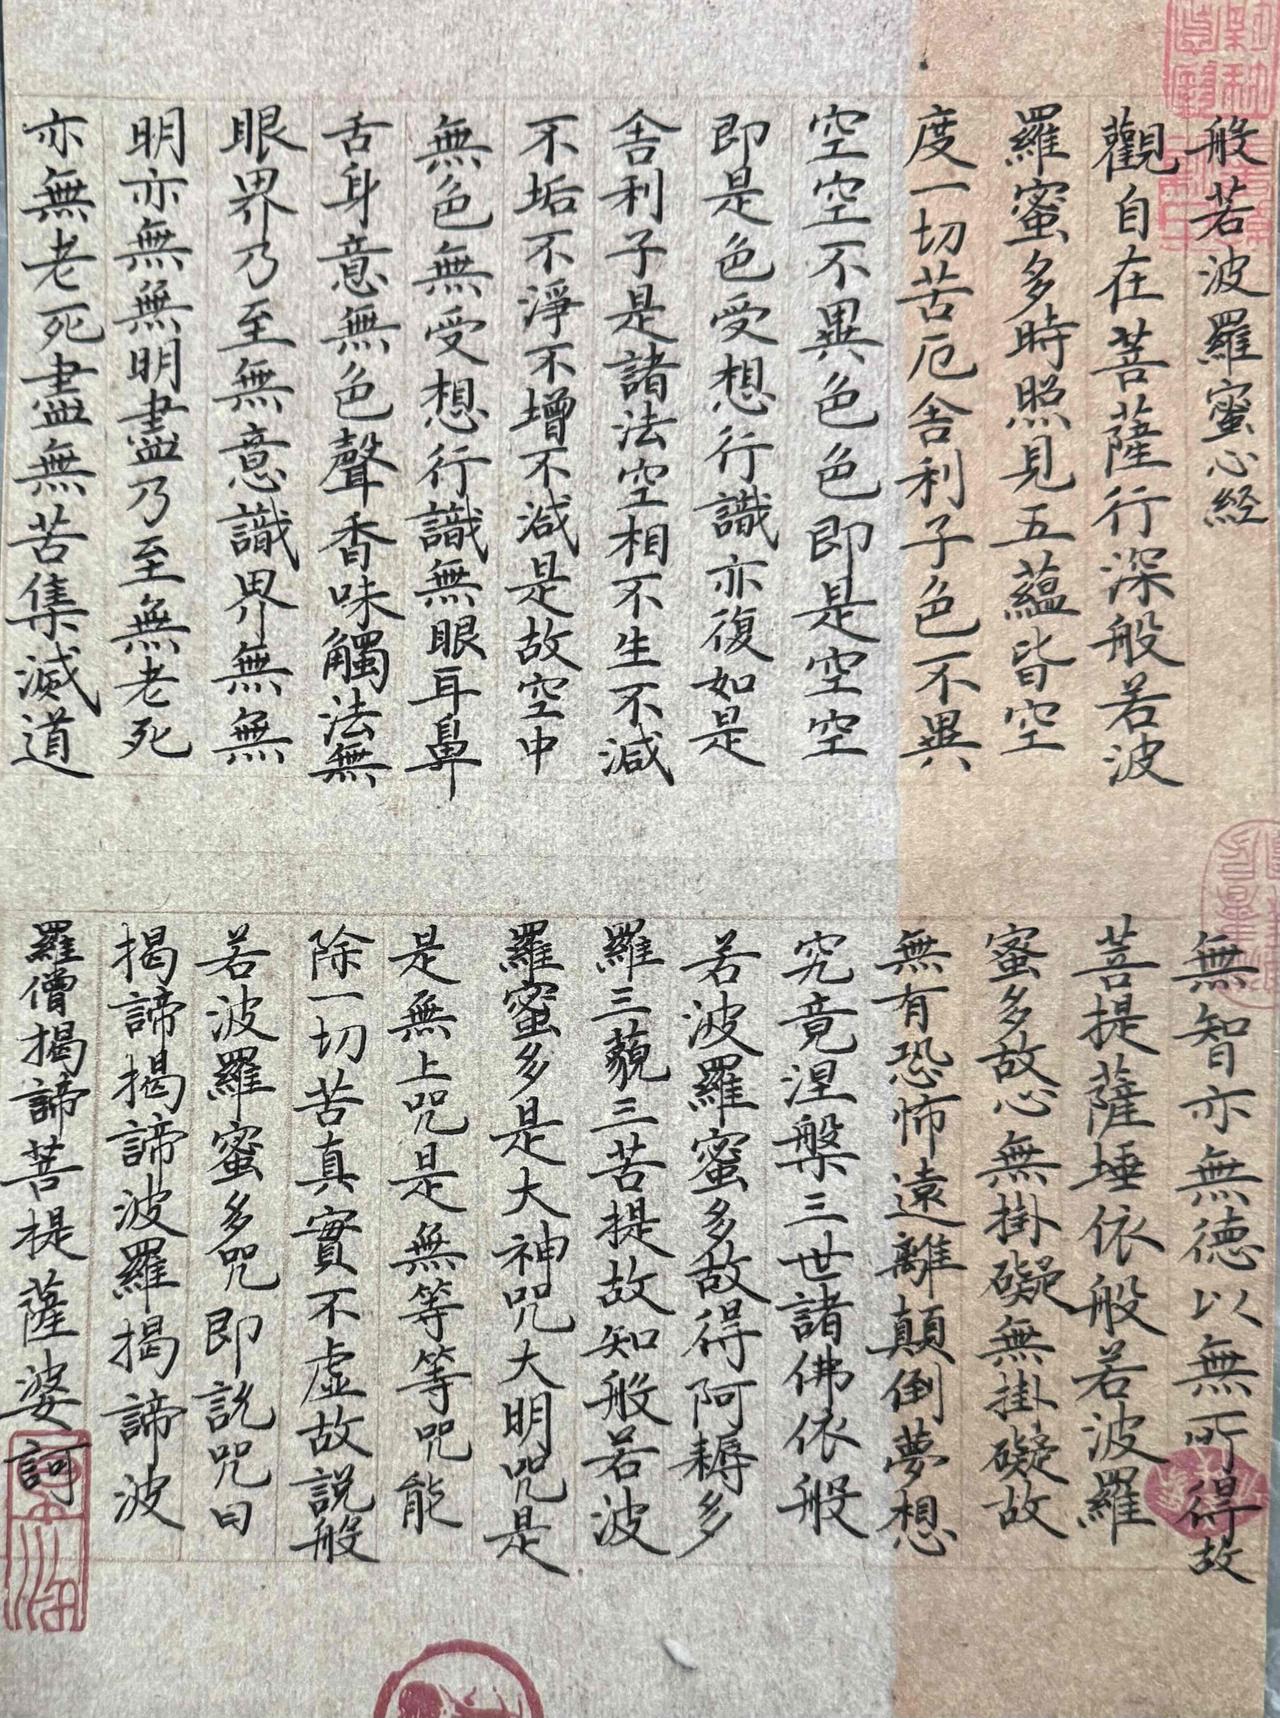 般若波羅蜜心経
觀自在菩薩行深般若波
羅蜜多時照見五蘊皆空
度一切苦厄舍利子色不異
空空不異色色即是空空
即是色受想行識亦復如是
舍利子是諸法空相不生不減
不垢不淨不增不減是故空中
無色無受想行識無眼耳鼻
舌身意無色聲香味觸法無
眼界乃至無意識界無無
明亦無無明盡乃至無老死
亦無老死盡無苦集滅道
無智亦無德以無所得故
菩提薩埵依般若波羅
蜜多故心無掛礙無掛礙故
無有恐怖遠離顛倒夢想
究竟涅槃三世諸佛依般
若波羅蜜多故得阿耨多
羅三藐三菩提故知般若波
羅蜜多是大神咒大明咒是
是無上咒是無等等咒能
除一切苦真實不虛故説般
若波羅蜜多咒即説咒曰
揭諦揭諦波羅揭諦波
羅僧揭諦菩提薩婆訶